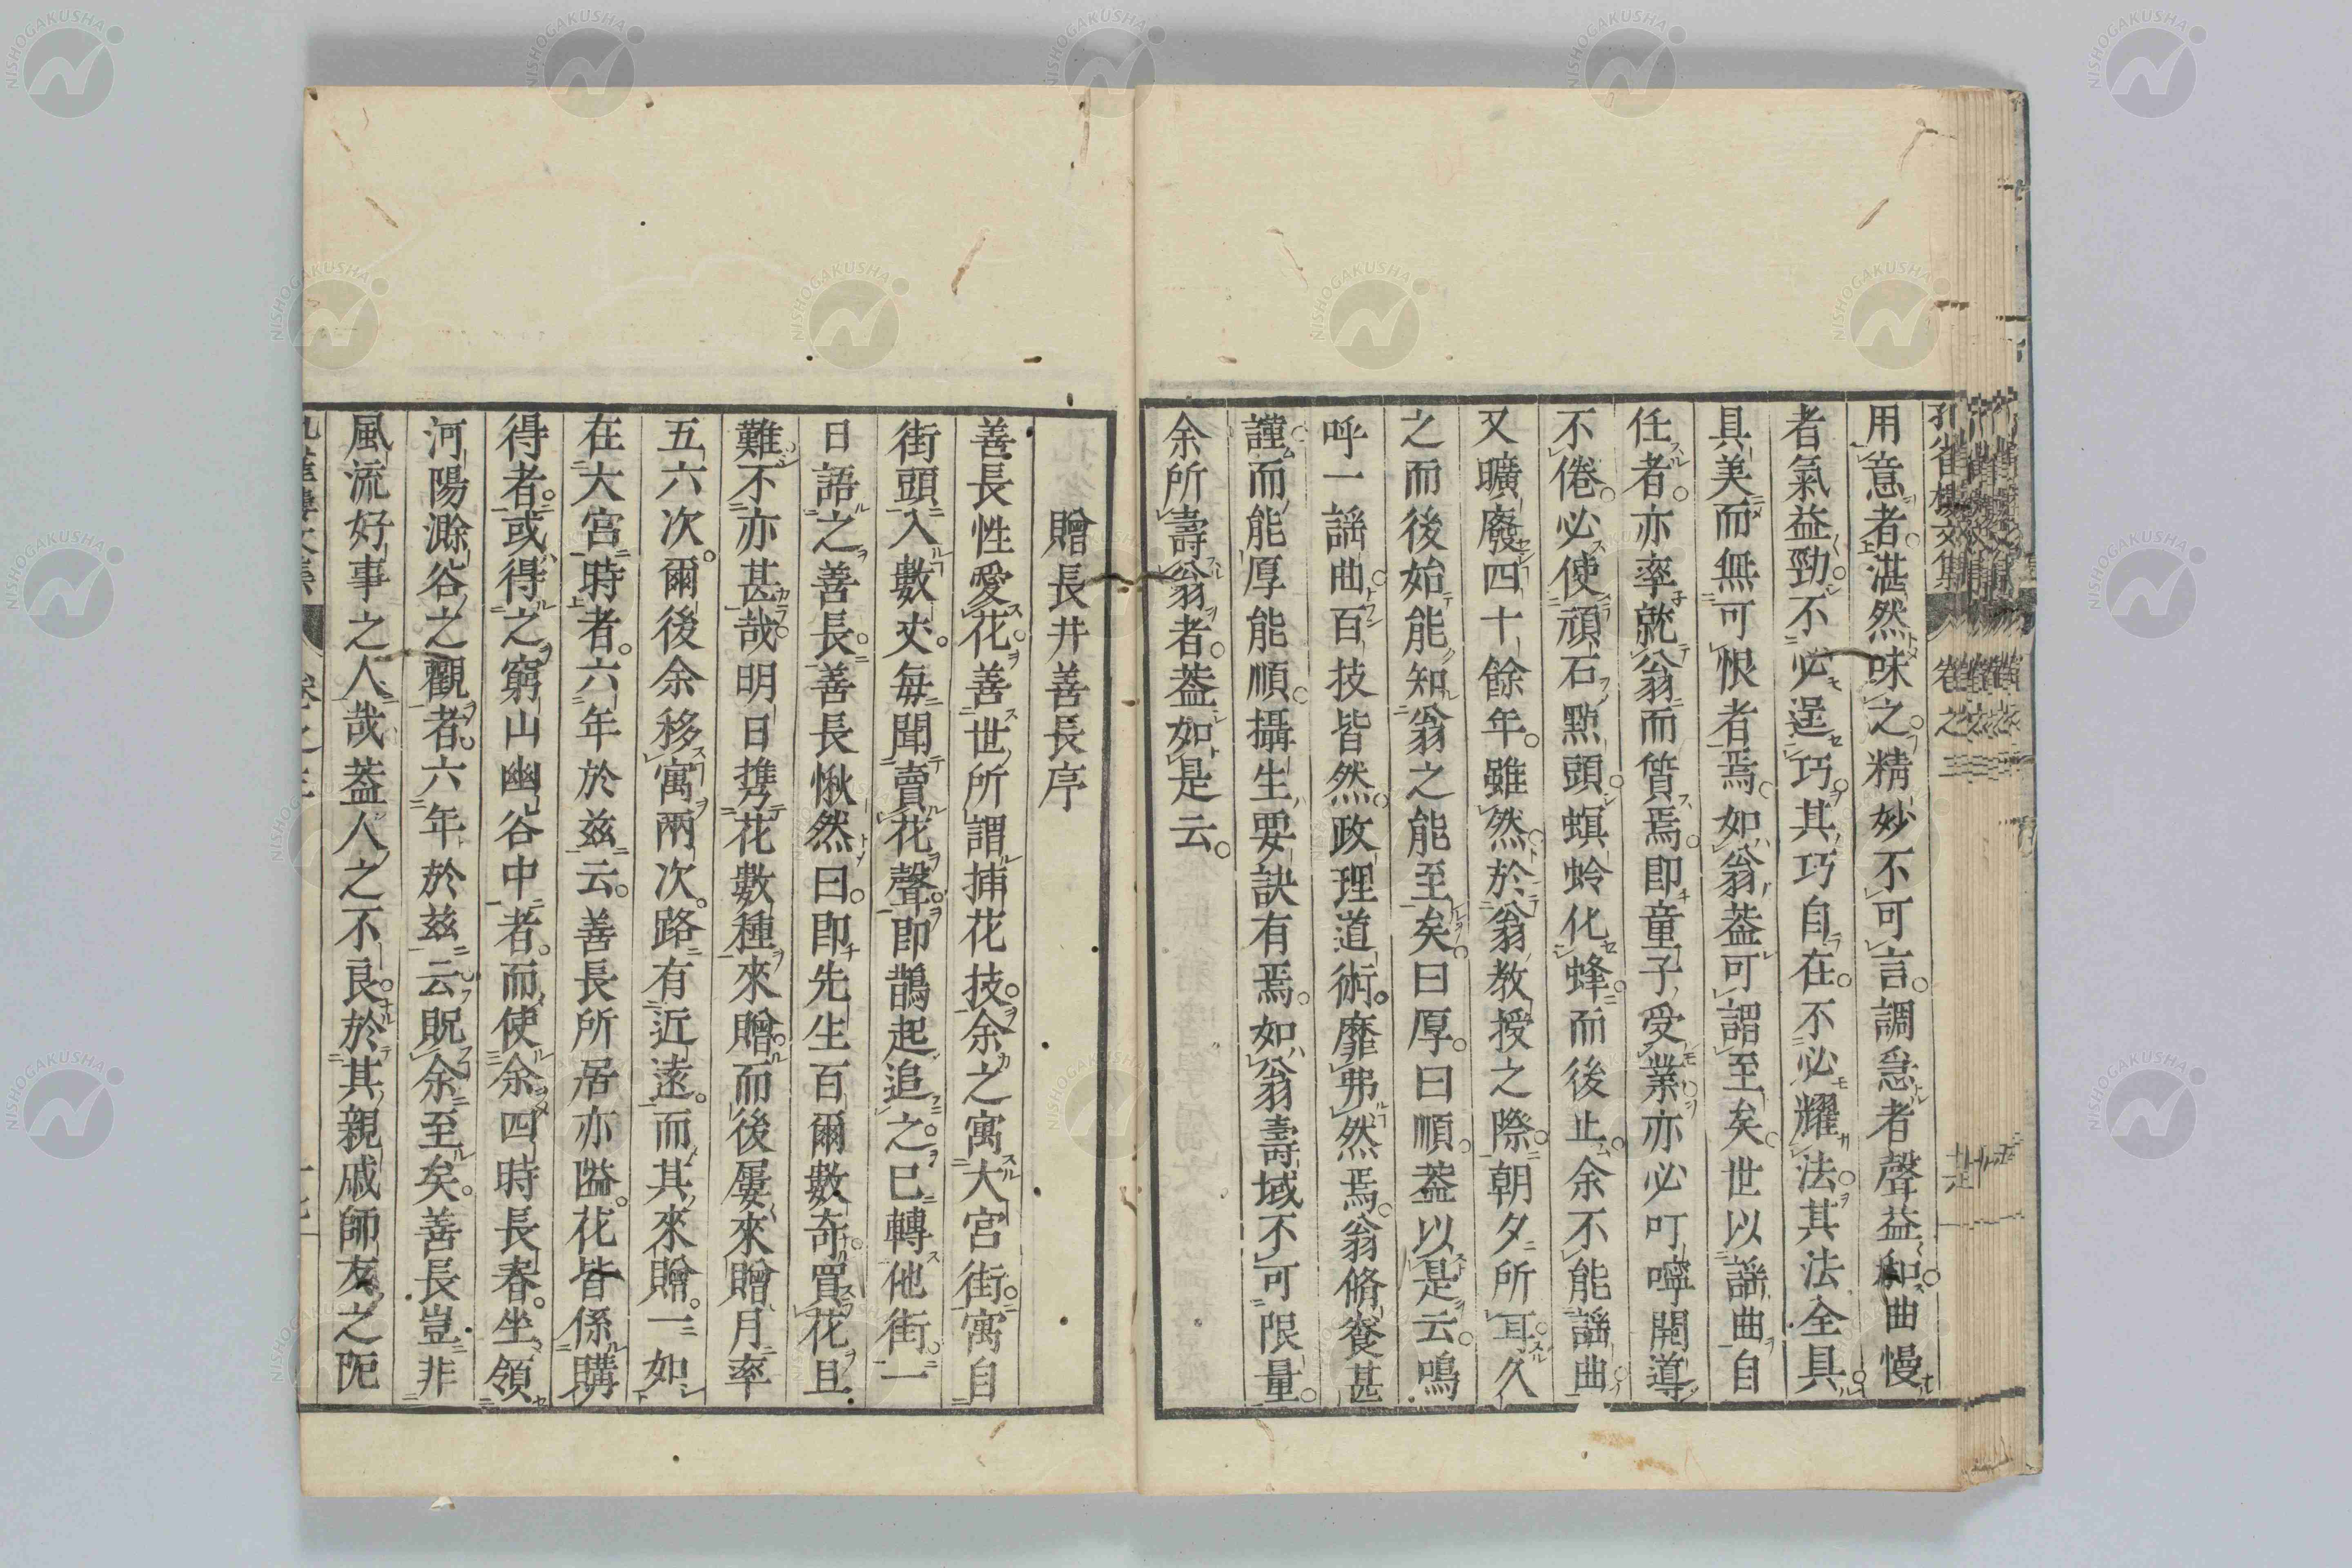 用意者。湛然味之。精妙不可言。調急者聲益和。曲慢
者氣益勁。不必逞巧。其巧自在。不必耀法。其法全具。
具美而無可恨者焉。如翁葢可謂至矣。世以謡曲自
任者。亦率就翁而質焉。即童子受業。亦必叮嚀開導
不倦。必使頑石點頭。螟蛉化蜂。而後止。余不能謡曲。
又曠廢四十餘年。雖然。於翁教授之際。朝夕所耳。久
之而後始能知翁之能至矣。曰厚。曰順。葢以是云。嗚
呼一謡曲。百技皆然。政理道術。靡弗然焉。翁脩養甚
謹。而能厚能順。攝生要訣有焉。如翁壽域不可限量。
余所壽翁者。葢如是云。
贈長井善長序
善長性愛花。善世所謂捕花技。余之寓大宮街。寓自
街頭入數丈。毎聞賣花聲。即鵲起追之。已轉他街。一
日語之善長。善長愀然曰。即先生百爾數奇。買花且
難。不亦甚哉。明日携花數種來贈。而後屢來贈月率
五六次。爾後余移寓兩次。路有近遠。而其來贈。一如
在大宮時者。六年於茲云。善長所居亦隘。花皆係購
得者。或得之窮山幽谷中者。而使余四時長春。坐領
河陽滁谷之觀者。六年於茲云。貺余至矣。善長豈非
風流好事之人哉。葢人之不良。於其親戚師友之阨